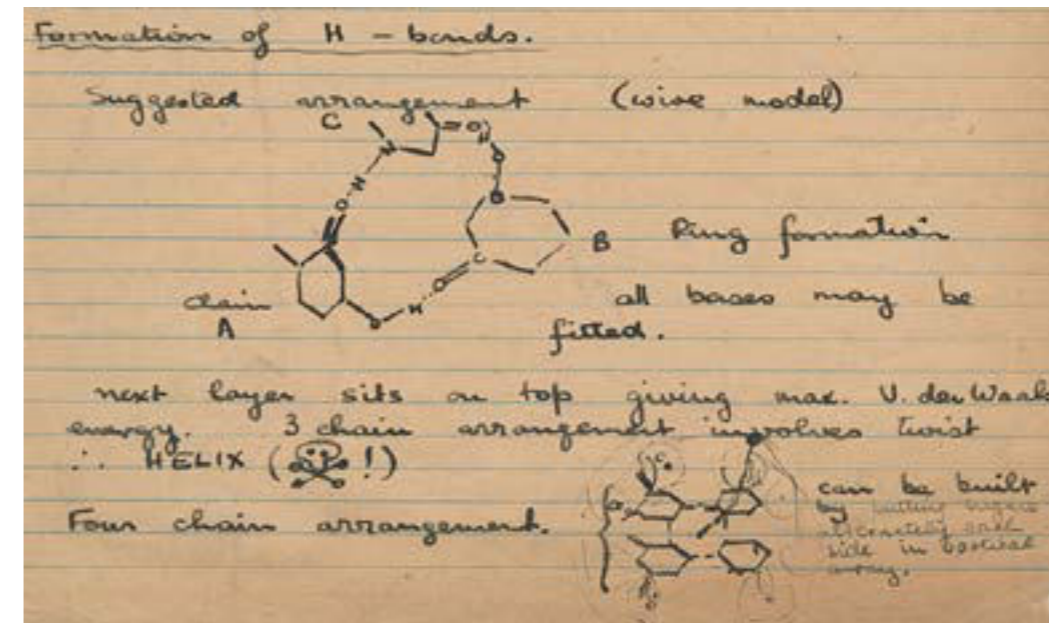 Formation of H - bonds.
Suggested arrangement (wire model)
C
=O
H
N
O
H
O
O
B Ring formation
C
O
chain
A
H
O
all bases may be
fitted.
next layer sits on top giving max. V. der Waals
energy. 3 chain arrangement involves twist
∴ HELIX ( !)
Four chain arrangement.
can be built
by
alternately and
side in vertical
array.